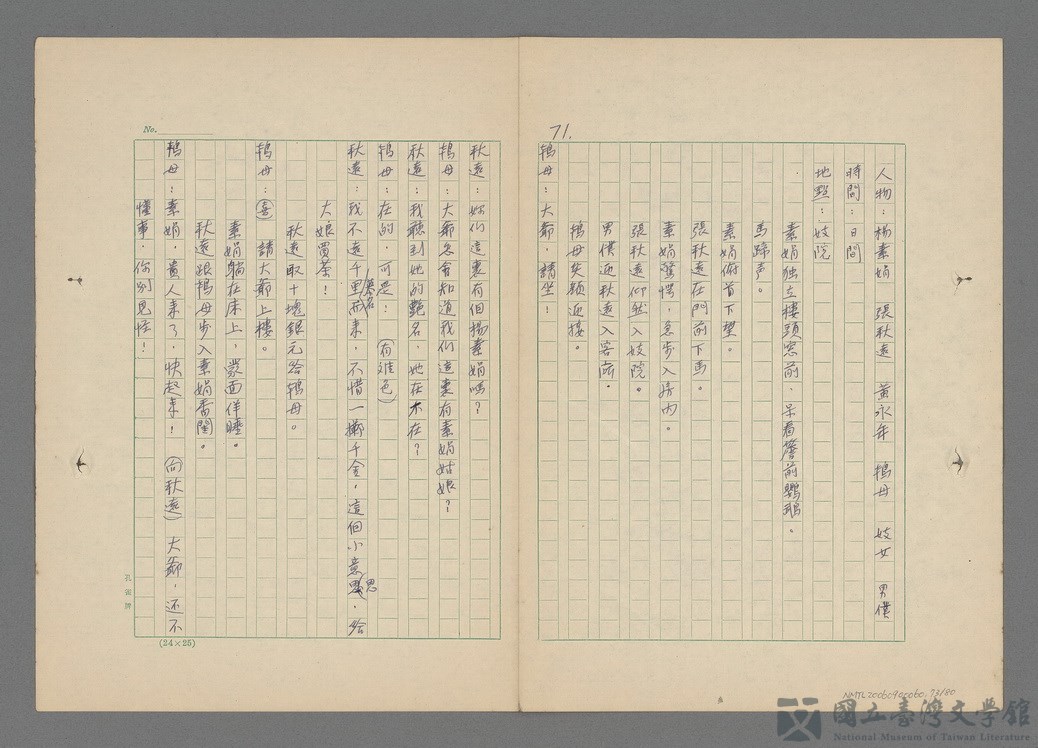 人物：楊素娟 張秋遠 黃永年 鴇母 妓女 男僕
時間：日間
地點：妓院
素娟独立樓頭窓前，呆看簷前鸚鵡。
馬蹄声。
素娟俯首下望。
張秋遠在門前下馬。
素娟驚愕，急步入房內。
張秋遠仰然入妓院。
男僕迎秋遠入客廳。
鴇母笑顏迎接。
71.
鴇母：大爺，請坐！
秋遠：妳们這裏有個揚素娟嗎？
鴇母：大爺怎會知道我们這裏有素娟姑娘？
秋遠：我聽到她的艷名，她在不在？
鴇母：在的，可是：(有难色)
秋遠：我不遠千里慕名而来，不惜一擲千金，這個小意思，给
大娘買茶！
秋遠取十塊銀元给鴇母。
鴇母：(喜)請大爺上樓。
素娟躺在床上，蒙面佯睡。
秋遠跟鴇母步入素娟香閨。
鴇母：素娟，貴人来了，快起来！(向秋遠)大爺，还不
懂事，你别見怪！
No.
(24×25)
孔雀牌
NMTL20060900060.73/80
國立臺灣文學館
National Museum of Taiwan Literature